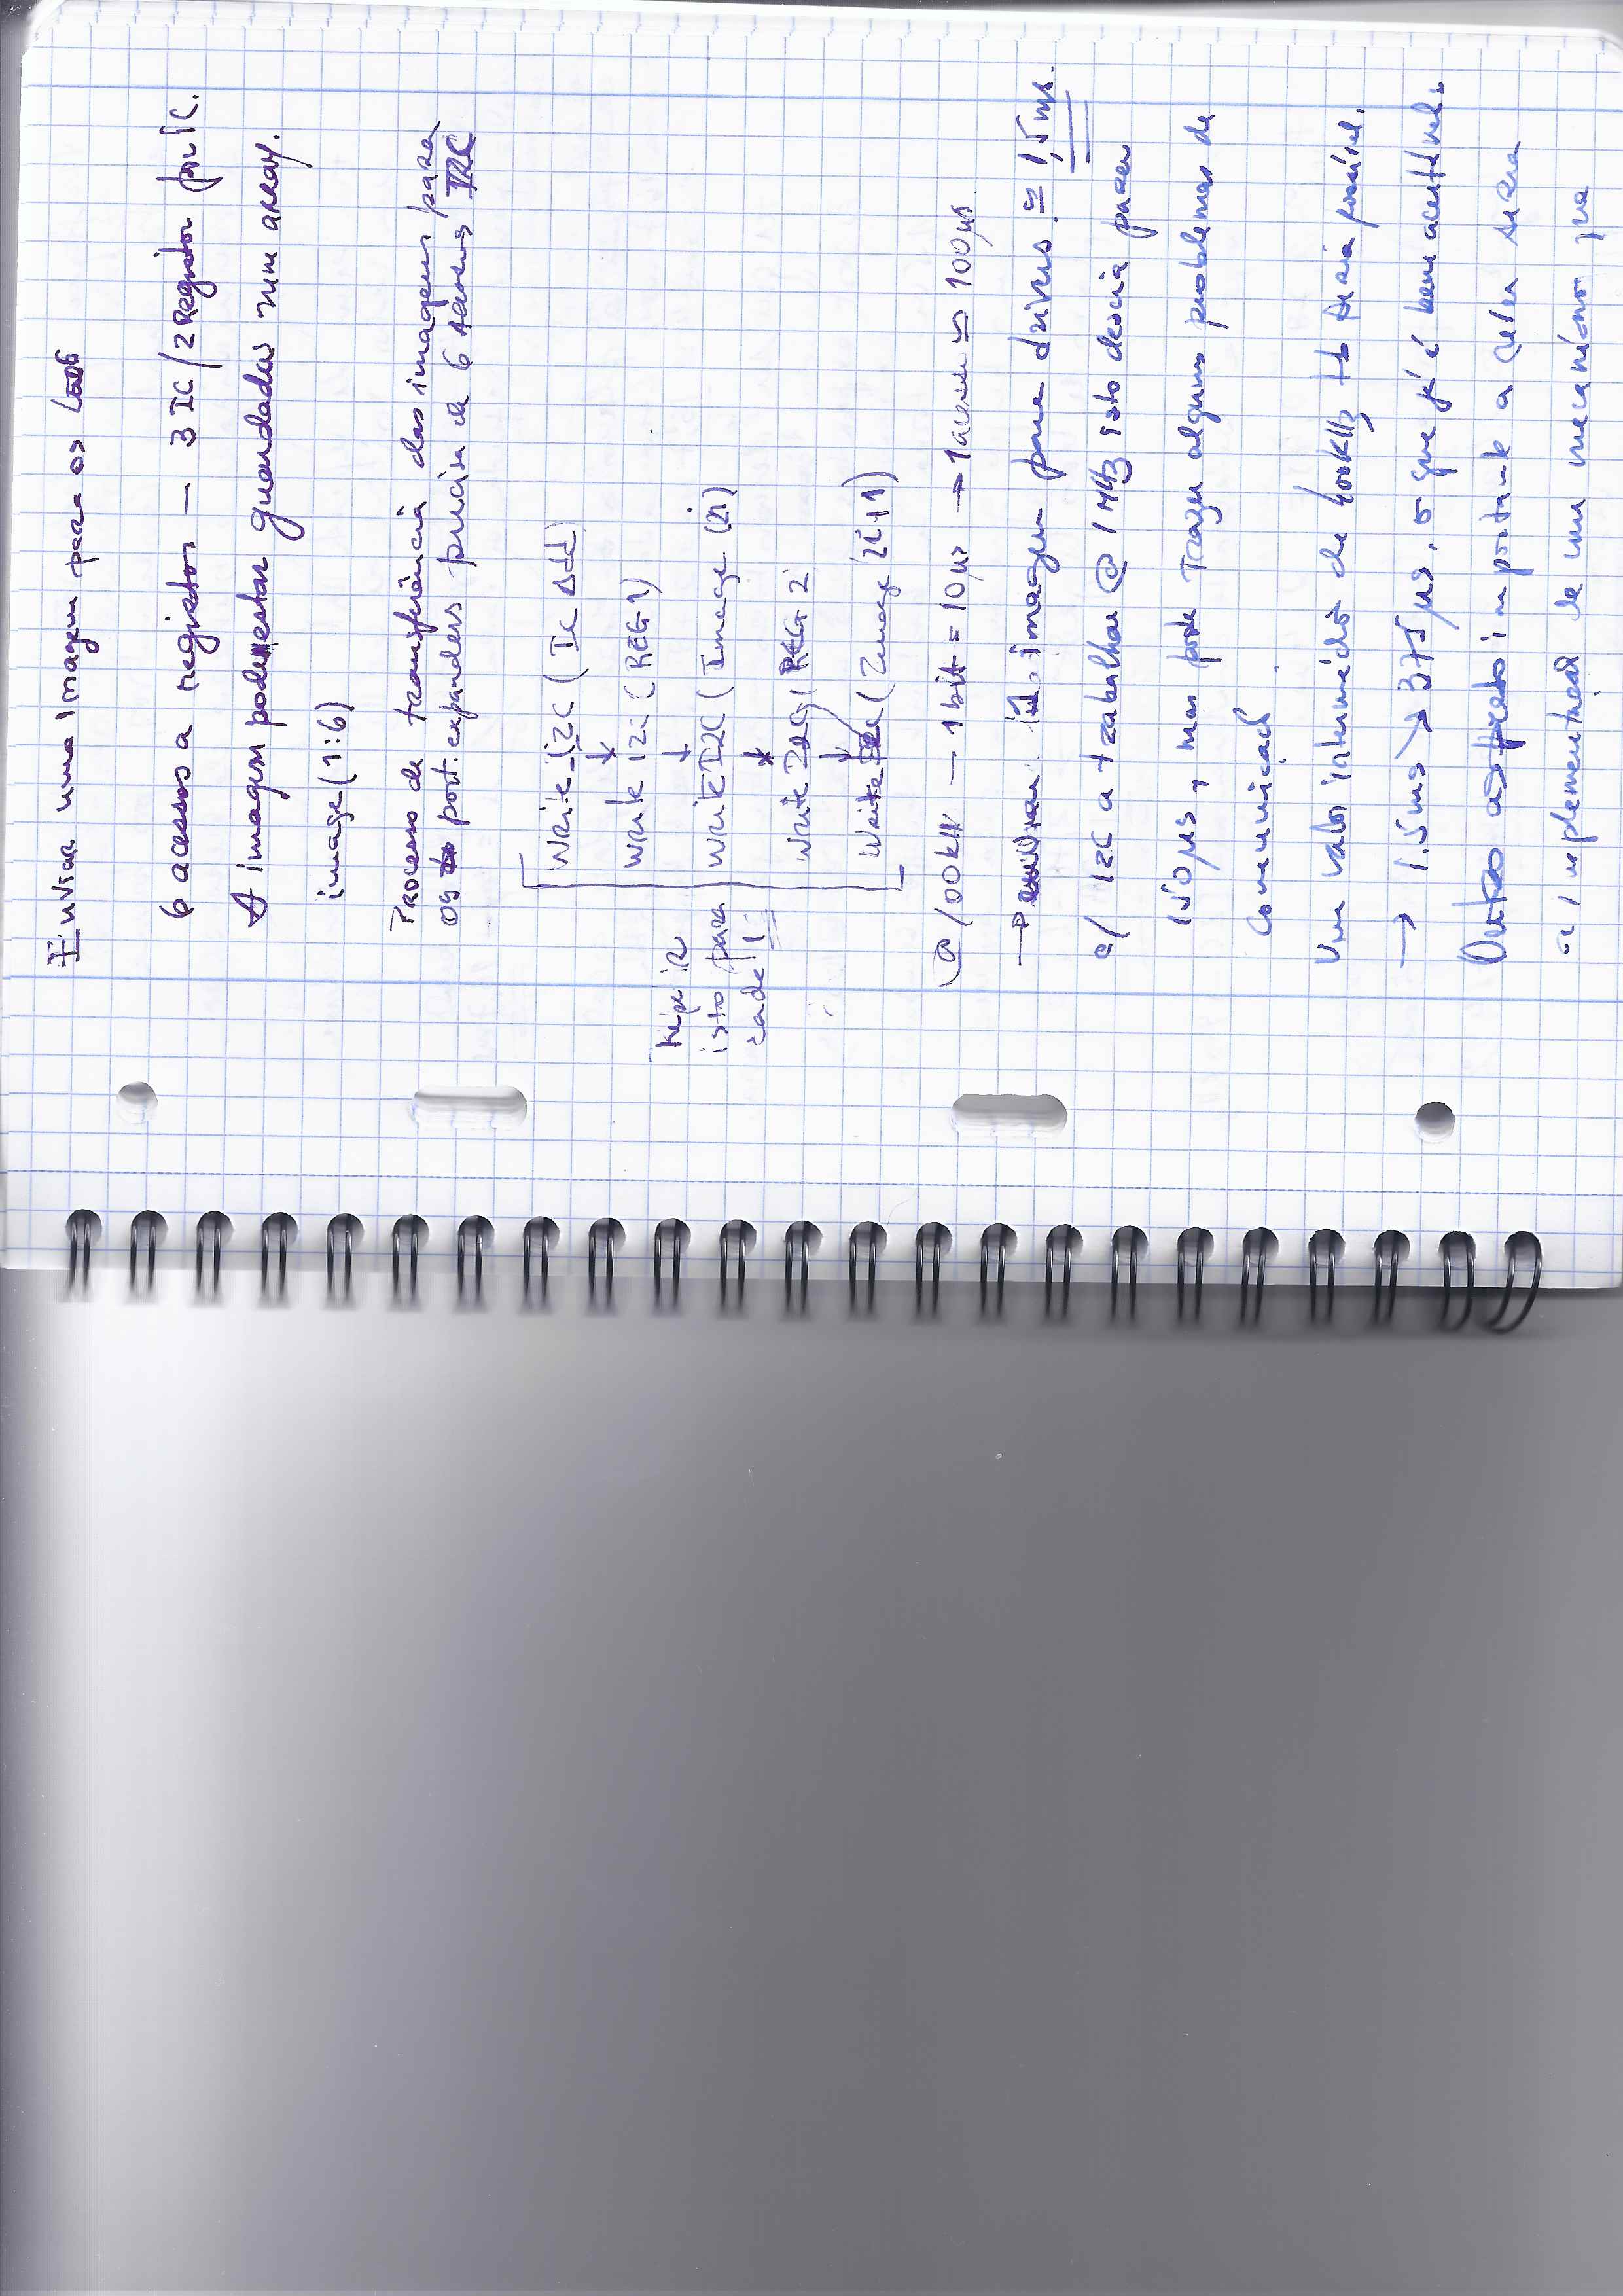 Enviar uma imagem para os LEDS
6 acessos a registos — 3 IC / 2 Registos por IC.
A imagem podem estar guardadas num array.
image (1:6)
Processo de transferência das imagens para
os port. expanders precisa de 6 acessos I2C
Write_i2C (IC Add)
↓
Write I2C (REG 1)
↓
Write I2C (Image (2i)
↓
Write I2C (REG 2
↓
Write (Image 2i+1)
Repetir
isto para
cada i
@ 100kH — 1 bit = 10µs → 1 acesso ≈ 100µs
→ 1 imagem para drivers ≅ 1,5ms.
c/ I2C a trabalhar @ 1MHz isto descia para
150µs, mas pode Trazer alguns problemas de
comunicação.
Um valor intermédio de 400kHz tb seria possível.
→ 1.5ms → 375µs. o que já é bem aceitável.
Outro aspecto importante a seria
a implementação de um mecanismo que